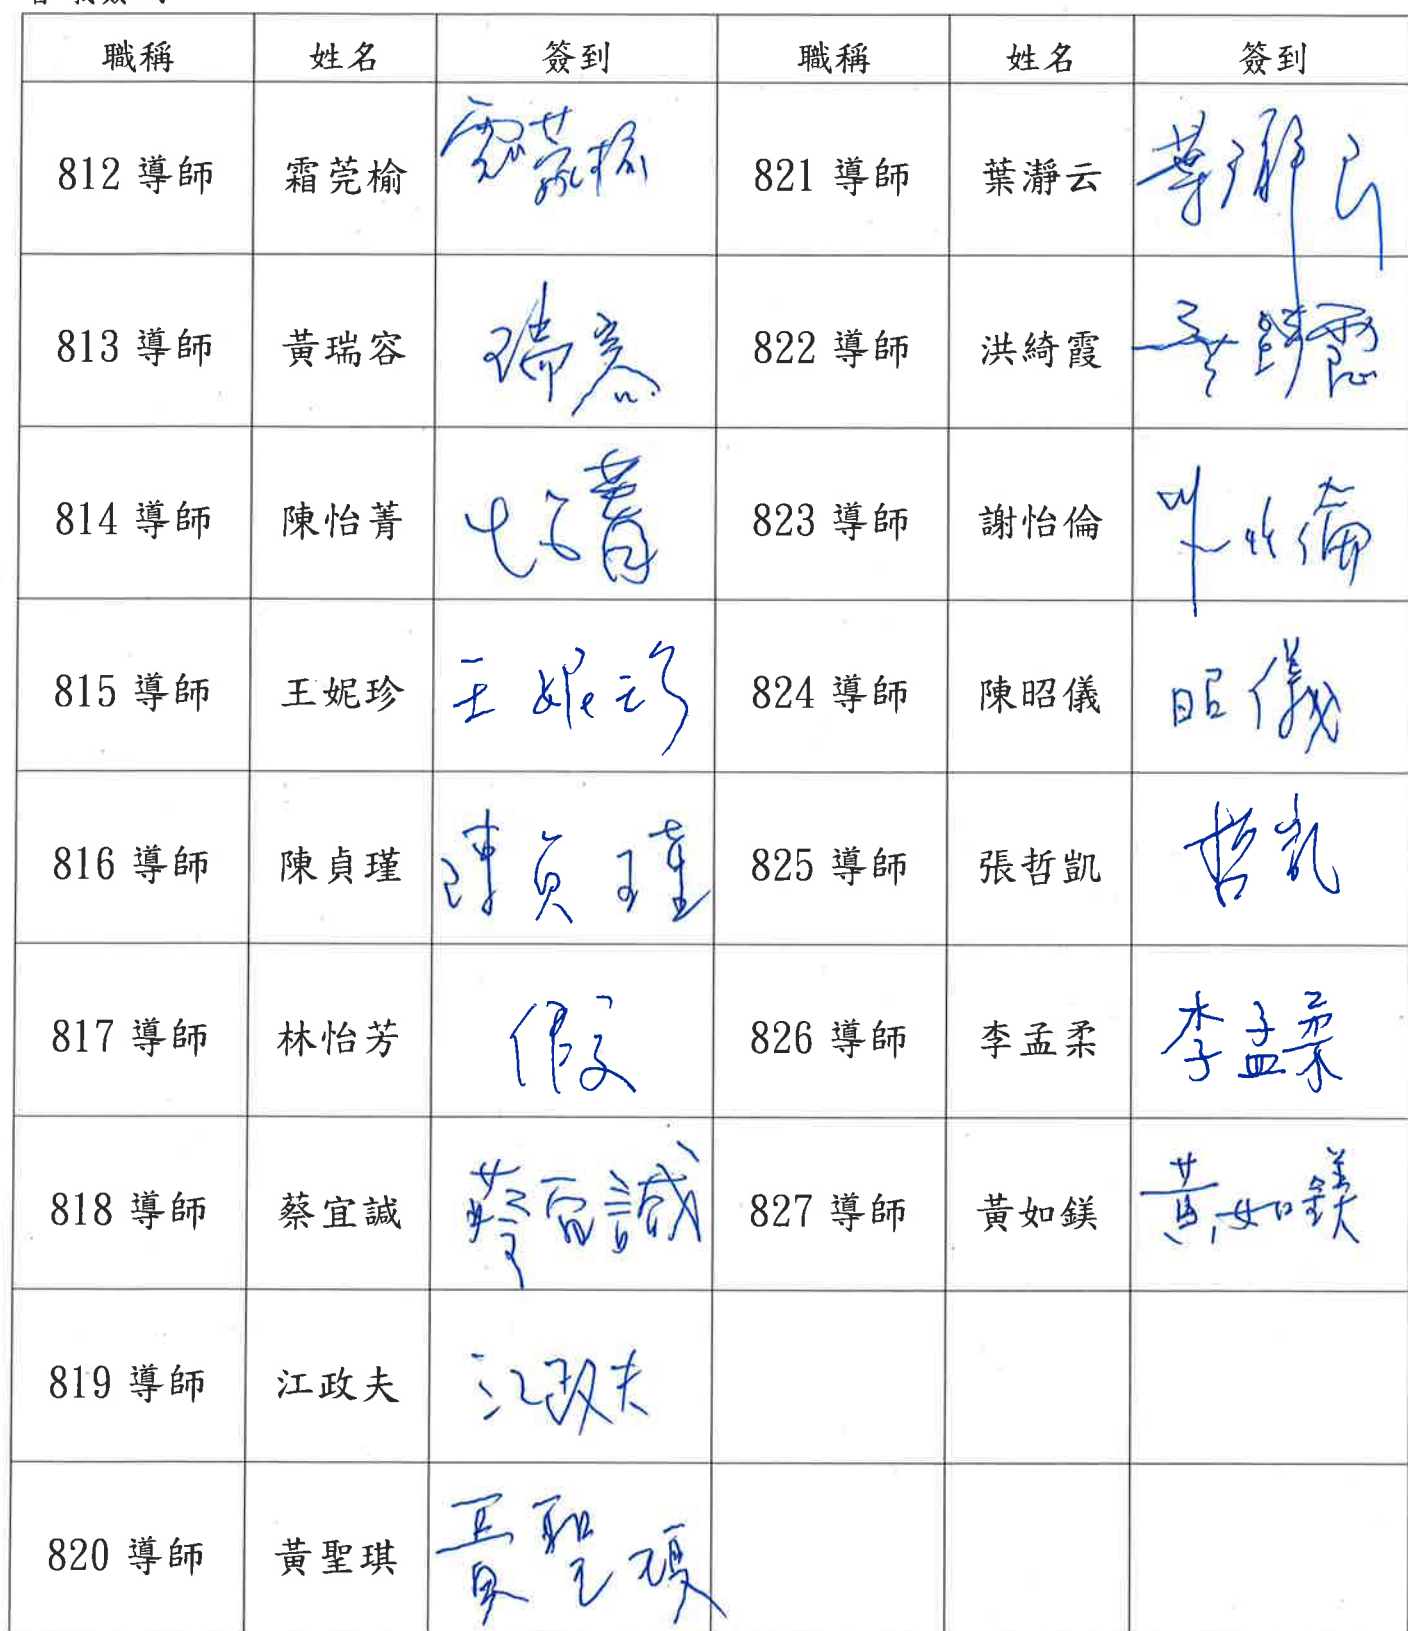 職稱 姓名 簽到 職稱 姓名 簽到
812 導師 霜莞榆 霜莞榆 821 導師 葉瀞云 葉瀞云
813 導師 黃瑞容 瑞容 822 導師 洪綺霞 洪綺霞
814 導師 陳怡菁 怡菁 823 導師 謝怡倫 怡倫
815 導師 王妮珍 王妮珍 824 導師 陳昭儀 昭儀
816 導師 陳貞瑾 陳貞瑾 825 導師 張哲凱 哲凱
817 導師 林怡芳 假 826 導師 李孟柔 李孟柔
818 導師 蔡宜誠 蔡宜誠 827 導師 黃如鎂 黃如鎂
819 導師 江政夫 江政夫
820 導師 黃聖琪 黃聖琪